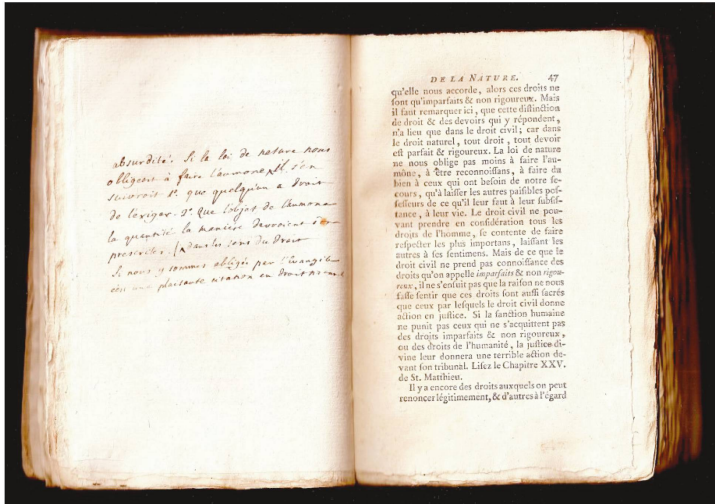 absurdité. Si la loi de nature nous
obligeoit à faire l'aumone, il s'en
suivroit 1°. que quelqu'un a droit
de l'exiger. 2°. que l'objet de l'aumone
la quantité la manière devroient être
prescrites. dans les loix du droit
Si nous y sommes obligés par l'Evangile
une plaisante citation en droit naturel
DE LA NATURE. 47
qu'elle nous accorde, alors ces droits ne
ſont qu'imparfaits & non rigoureux. Mais
il faut remarquer ici, que cette diſtinction
de droit & des devoirs qui y répondent,
n'a lieu que dans le droit civil; car dans
le droit naturel, tout droit, tout devoir
eſt parfait & rigoureux. La loi de nature
ne nous oblige pas moins à faire l'au-
mône, à être reconnoiſſans, à faire du
bien à ceux qui ont beſoin de notre ſe-
cours, qu'à laiſſer les autres paiſibles poſ-
ſeſſeurs de ce qu'il leur faut à leur ſubſiſ-
tance, à leur vie. Le droit civil ne pou-
vant prendre en conſidération tous les
droits de l'homme, ſe contente de faire
reſpecter les plus importans, laiſſant les
autres à ſes ſentimens. Mais de ce que le
droit civil ne prend pas connoiſſance des
droits qu'on appelle imparfaits & non rigou-
reux, il ne s'enſuit pas que la raiſon ne nous
faſſe ſentir que ces droits ſont auſſi ſacrés
que ceux par leſquels le droit civil donne
action en juſtice. Si la ſanction humaine
ne punit pas ceux qui ne s'acquittent pas
des droits imparfaits & non rigoureux,
ou des droits de l'humanité, la juſtice di-
vine leur donnera une terrible action de-
vant ſon tribunal. Liſez le Chapitre XXV.
de St. Matthieu.
Il y a encore des droits auxquels on peut
renoncer légitimement, & d'autres à l'égard